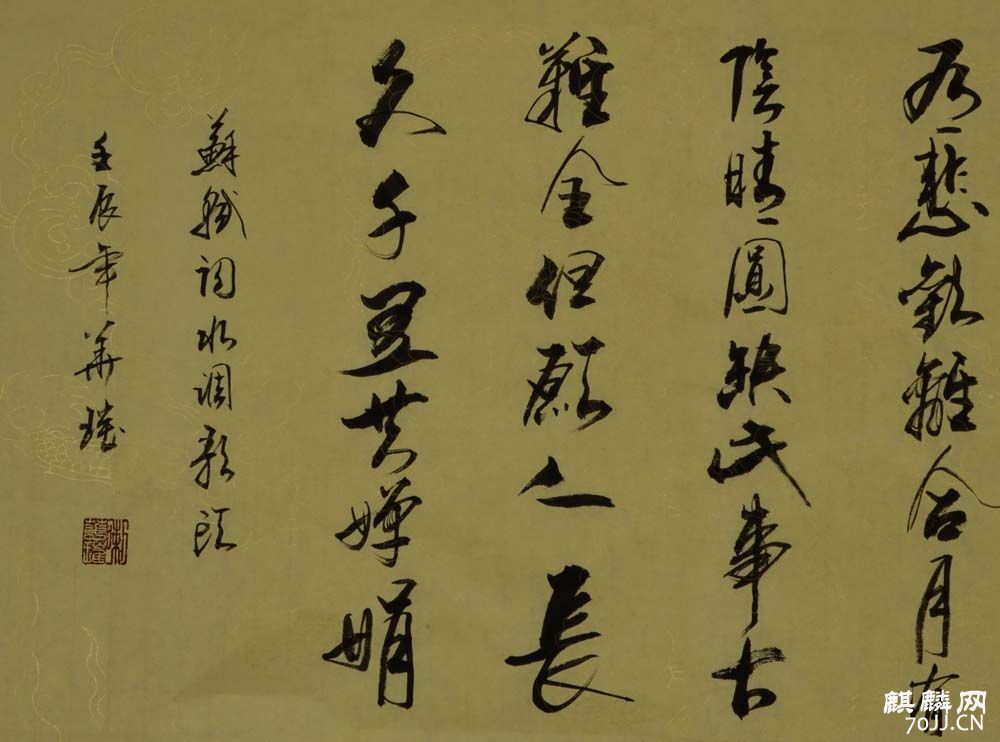 有悲歡離合月有
陰晴圓缺此事古
難全但願人長
久千里共嬋娟
蘇軾词水调歌頭
壬辰年華
麒麟网
70JJ.CN